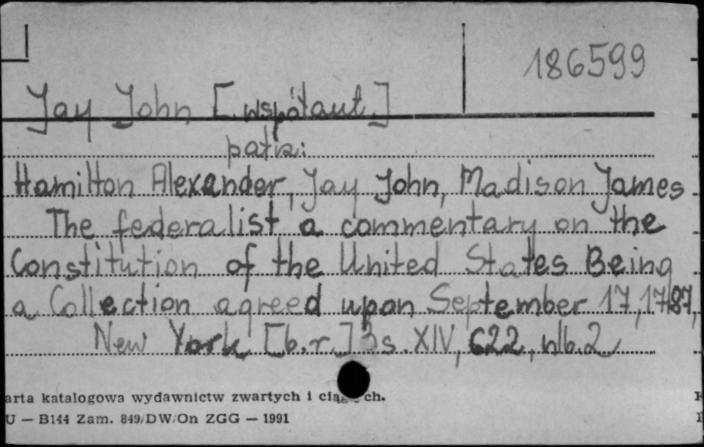 186599
Jay John [współaut.]
patrz:
Hamilton Alexander, Jay John, Madison James
The federalist a commentary on the
Constitution of the United States Being
a Collection agreed upon September 17, 1787,
New York [b.r.] s. XIV, 622, nlb. 2
arta katalogowa wydawnictw zwartych i ch.
U — B144 Zam. 849/DW/On ZGG — 1991